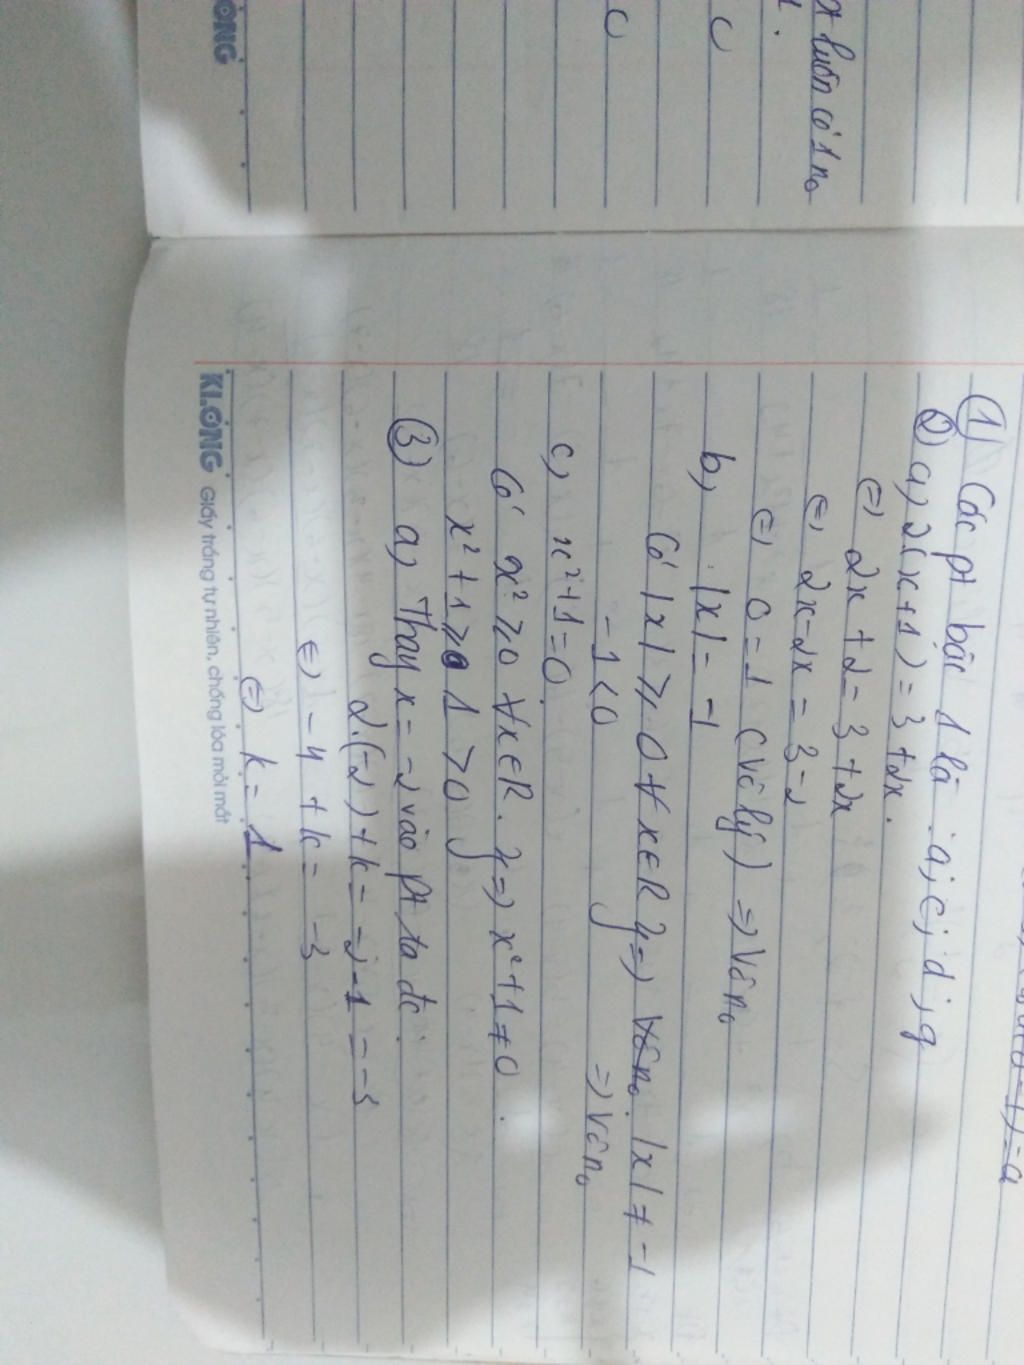 x luôn có 1 n₀
1.
(1) Các pt bậc 1 là: a; c; d; g
2) a, 2(x+1) = 3 + 2x.
⇔ 2x + 2 = 3 + 2x
⇔ 2x - 2x = 3 - 2
⇔ 0 = 1 (vô lý) ⇒ vô n₀
b, |x| = -1
Có |x| ⩾ 0 ∀ x ∈ R } ⇒ vô n₀. |x| ≠ -1
-1 < 0 ⇒ vô n₀
c, x² + 1 = 0.
Có x² ⩾ 0 ∀x ∈ R. } ⇒ x² + 1 ≠ 0.
x² + 1 ⩾ 1 > 0
(3) a, Thay x = -2 vào pt ta đc:
2.(-2) + k = -2 - 1 = -3
⇔ -4 + k = -3
⇔ k = 1
KLONG Giấy trắng tự nhiên, chống lóa mỏi mắt